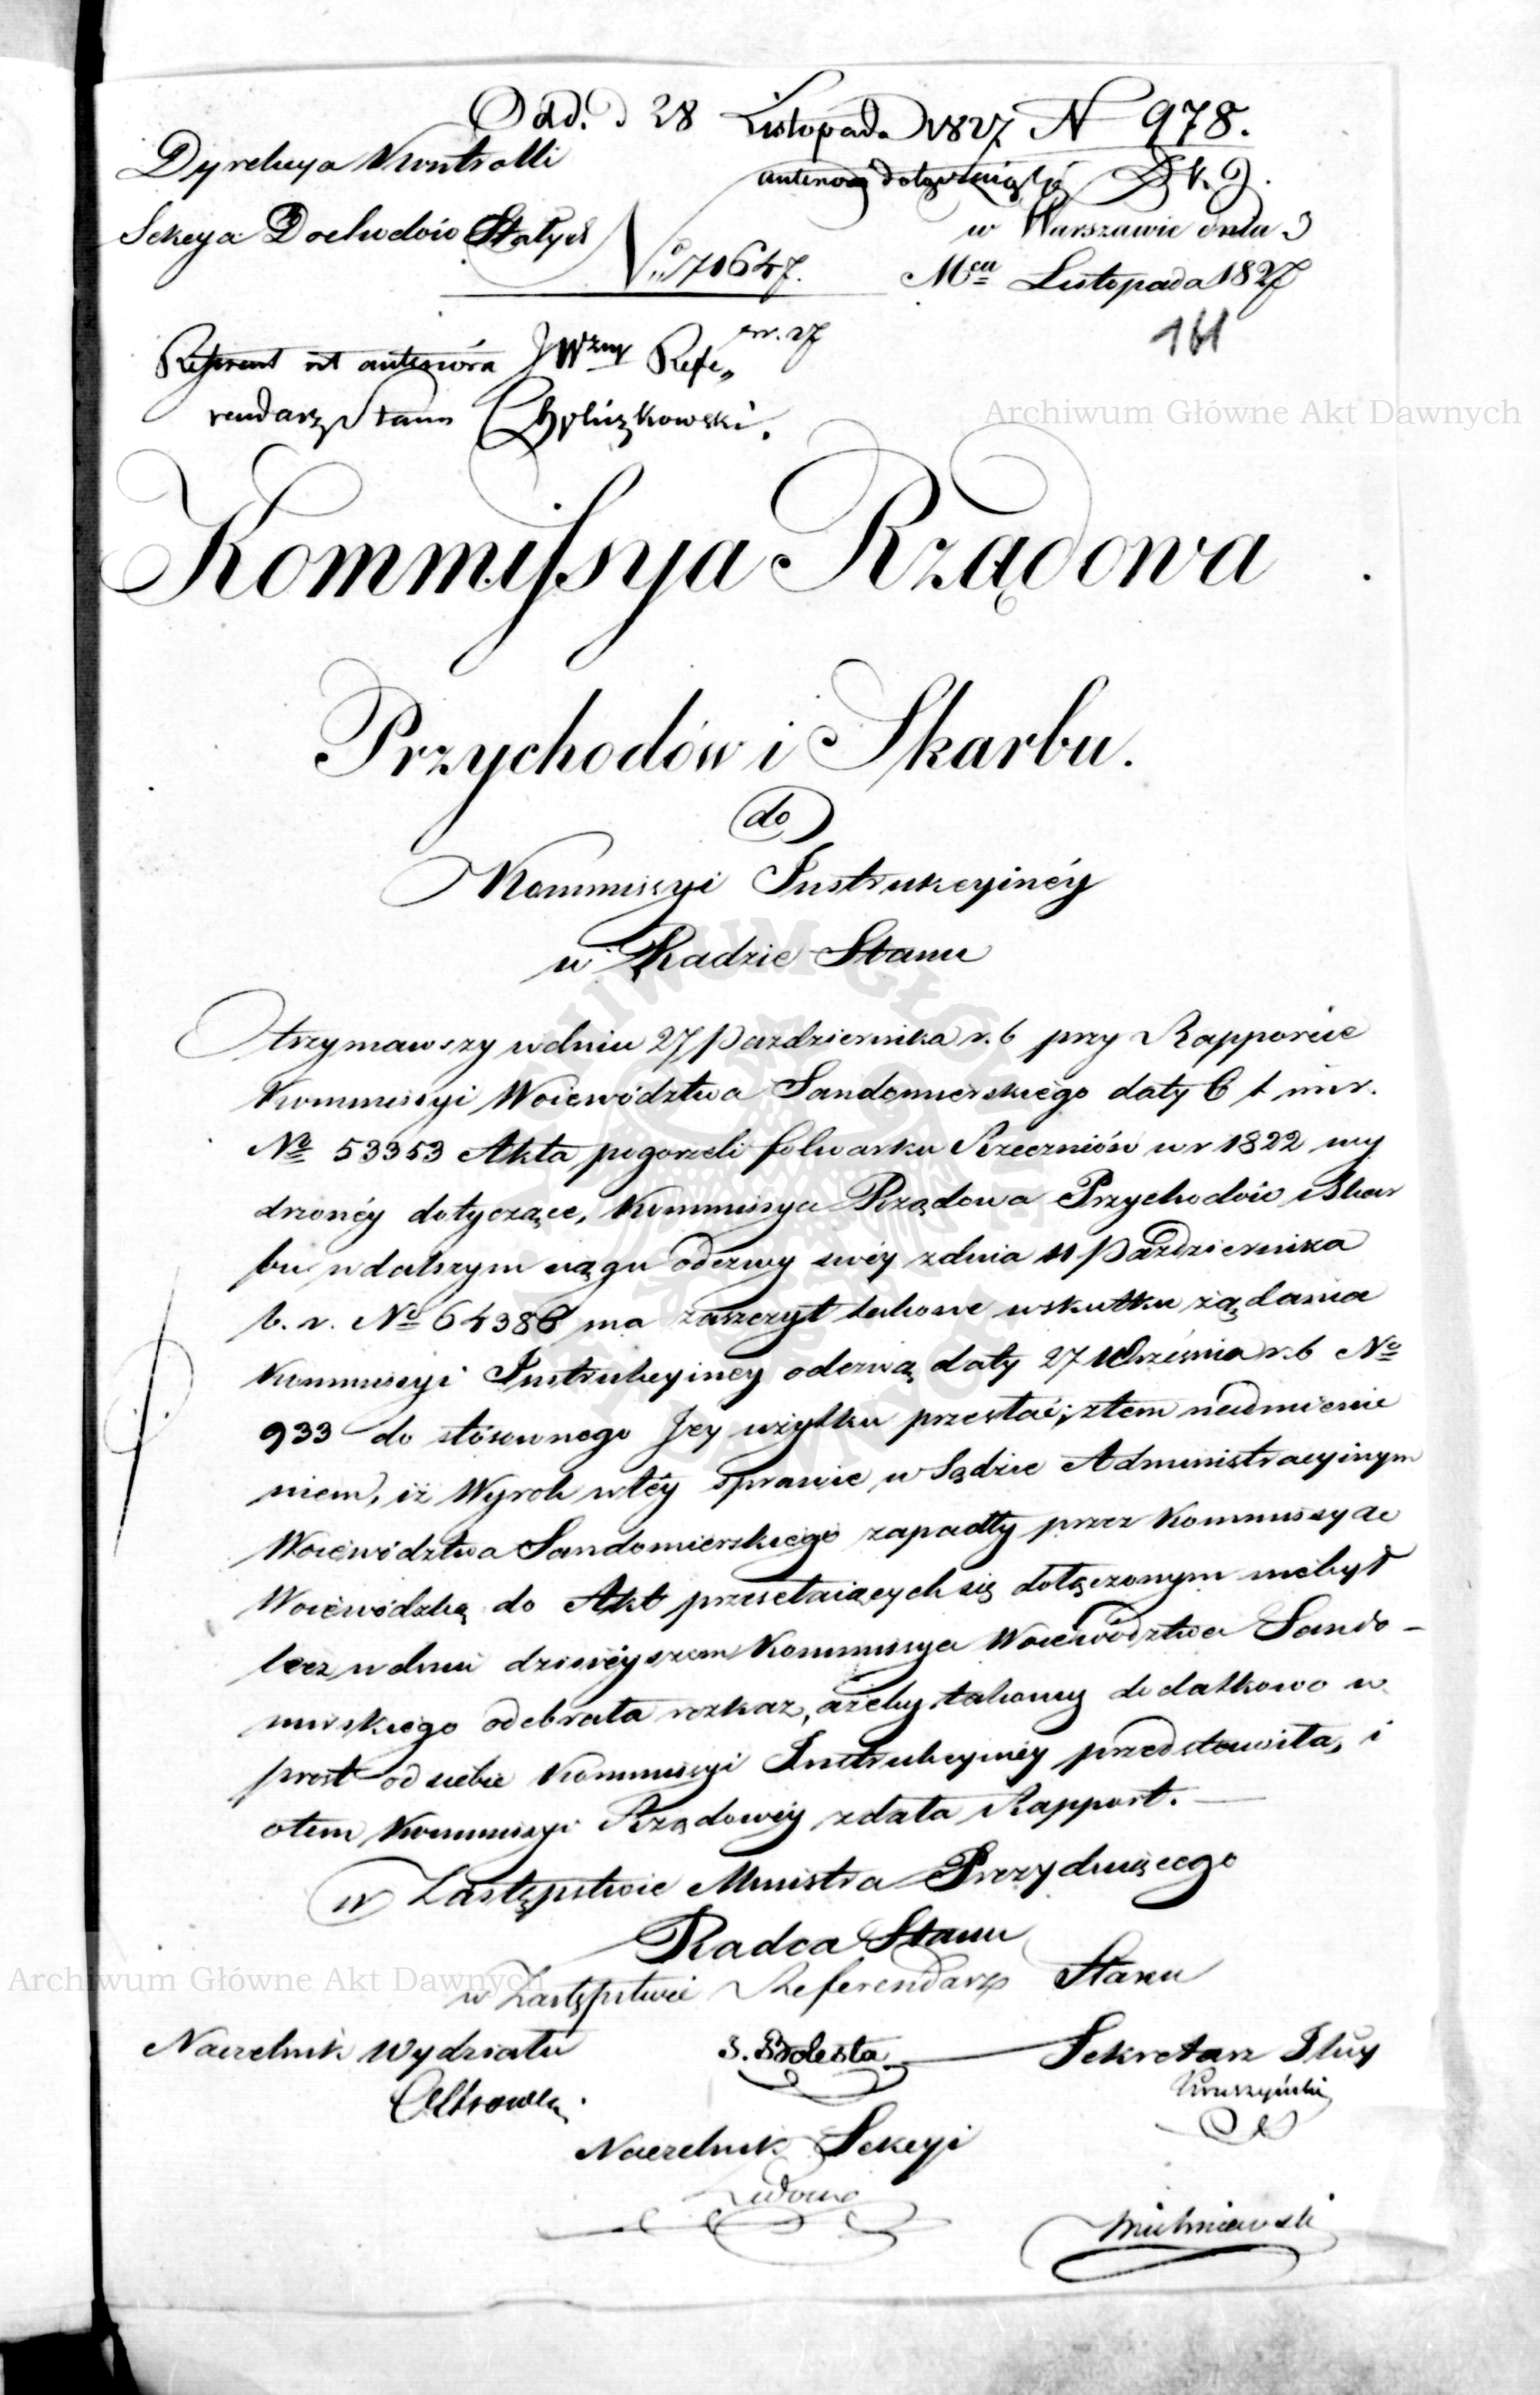 Odd. d 28 Listopada 1827 N 978.
Dyrekcya Kontrolli
anteriora dołączyć
Sekcya Dochodów Stałych
No 71647.
w Warszawie dnia 3
Mca Listopada 1827
161
Referent ut anteriora JWzny Refe„
rendarz Stanu
Archiwum Główne Akt Dawnych
Kommissya Rządowa
Przychodów i Skarbu.
do
Kommissyi Instrukcyinéy
w Radzie Stanu
Otrzymawszy w dniu 27 Pazdziernika r. b przy Rapporcie
Kommissyi Woiewództwa Sandomierskiego daty 6 t m i r.
No 53353 Akta pogorzeli folwarku Rzeczniów w r 1822 wy
drzonéy dotyczące, Kommissya Rządowa Przychodów i Skar
bu w dalszym ciągu odezwy swéy z dnia 11 Pazdziernika
b. r. No 64386 ma zaszczyt takowe w skutku ządania
Kommissyi Instrukcyiney odezwą daty 27 Września r. b No
933 do stósownego Jey użytku przesłać; z tem nadmienie
niem, iż Wyrok w téy sprawie w Sądzie Administracyinym
Woiewództwa Sandomierskiego zapadły przez Kommissyae
Woiewódzką do Akt przesełaiących się dołączonym niebył
lecz w dniu dzisiéyszem Kommissya Woiewództwa Sando-
mirskiego odebrała rozkaz, ażeby takowy dodatkowo w
prost od siebie Kommissyi Instrukcyinéy przedstawiła, i
o tem Kommissyi Rządowéy zdała Rapport. —
w Zastępstwie Ministra Prezyduiącego
Radca Stanu
Archiwum Główne Akt Dawnych
w Zastępstwie Referendarz Stanu
Naczelnik Wydziału
Sekretarz Jlny
Kruszyński
Naczelnik Sekcyi